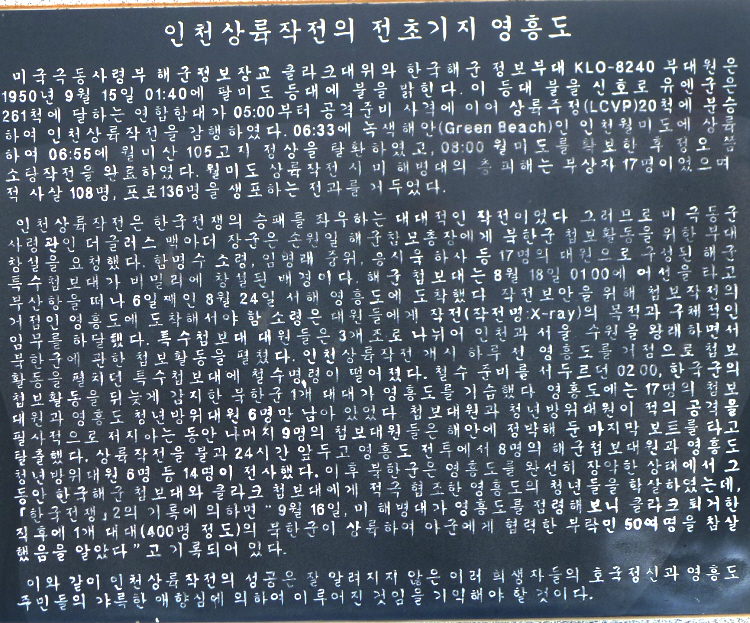 인천상륙작전의 전초기지 영흥도
미국극동사령부 해군정보장교 클라크대위와 한국해군 정보부대 KLO-8240 부대원은
1950년 9월 15일 01:40에 팔미도 등대에 불을 밝힌다. 이 등대 불을 신호로 유엔군은
261척에 달하는 연합함대가 05:00부터 공격준비 사격에 이어 상륙주정(LCVP)20척에 분승
하여 인천상륙작전을 감행하였다. 06:33에 녹색해안(Green Beach)인 인천월미도에 상륙
하여 06:55에 월미산 105고지 정상을 탈환하였고, 08:00 월미도를 확보한 후 정오쯤
소탕작전을 완료하였다. 월미도 상륙작전시 미 해병대의 총 피해는 부상자 17명이었으며
적 사살 108명, 포로136명을 생포하는 전과를 거두었다.
인천상륙작전은 한국전쟁의 승패를 좌우하는 대대적인 작전이었다 그러므로 미 극동군
사령관인 더글러스 맥아더 장군은 손원일 해군참모총장에게 북한군 첩보활동을 위한 부대
창설을 요청했다. 함명수 소령, 임병래 중위, 홍시욱 하사 등 17명의 대원으로 구성된 해군
특수첩보대가 비밀리에 창설된 배경이다. 해군 첩보대는 8월 18일 01:00에 어선을 타고
부산항을 떠나 6일째인 8월 24일 서해 영흥도에 도착했다 작전보안을 위해 첩보작전의
거점인 영흥도에 도착해서야 함 소령은 대원들에게 작전(작전명:X-ray)의 목적과 구체적인
임무를 하달했다. 특수첩보대 대원들은 3개 조로 나뉘어 인천과 서울 수원을 왕래하면서
북한군에 관한 첩보활동을 펼쳤다. 인천상륙작전 개시 하루 전 영흥도를 거점으로 첩보
활동을 펼치던 특수첩보대에 철수명령이 떨어졌다. 철수 준비를 서두르던 02:00, 한국군의
첩보활동을 뒤늦게 감지한 북한군 1개 대대가 영흥도를 기습했다 영흥도에는 17명의 첩보
대원과 영흥도 청년방위대원 6명만 남아 있었다 첩보대원과 청년방위대원이 적의 공격을
필사적으로 저지하는 동안 나머지 9명의 첩보대원들은 해안에 정박해 둔 마지막 보트를 타고
탈출했다. 상륙작전을 불과 24시간 앞두고 영흥도 전투에서 8명의 해군첩보대원과 영흥도
청년방위대원 6명 등 14명이 전사했다. 이후 북한군은 영흥도를 완전히 장악한 상태에서 그
동안 한국해군 첩보대와 클라크 첩보대에게 적극 협조한 영흥도의 청년들을 학살하였는데,
「한국전쟁」2의 기록에 의하면 “9월 16일, 미 해병대가 영흥도를 점령해 보니 클라크 퇴거한
직후에 1개 대대(400명 정도)의 북한군이 상륙하여 아군에게 협력한 부락민 50여명을 참살
했음을 알았다”고 기록되어 있다.
이와 같이 인천상륙작전의 성공은 잘 알려지지 않은 이러 희생자들의 호국정신과 영흥도
주민들의 갸륵한 애향심에 의하여 이루어진 것임을 기억해야 할 것이다.